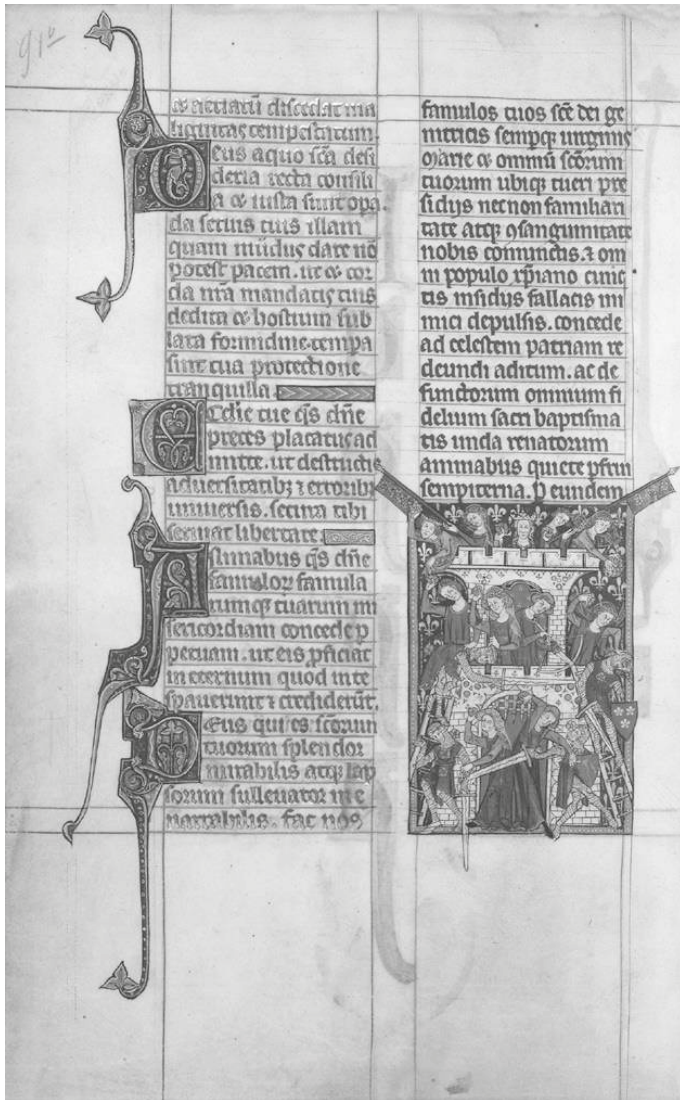 91b
& aeriarū discedat ma
lignitas tempestatum.
Deus a quo sc̄a desi
deria recta consili
a & iusta sunt opa.
da seruis tuis illam
quam mūdus dare nō
potest pacem. ut & cor
da nr̄a mandatis tuis
dedita & hostium sub
lata formidine. tempa
sint tua protectione
tranquilla
Ecclīe tue qs̄ dn̄e
preces placatus ad
mitte. ut destructis
aduersitatibꝫ ⁊ erroribꝫ
uniuersis. secura tibi
seruiat libertate.
Animabus qs̄ dn̄e
famuloꝝ famula
rumqꝫ tuarum mi
sericordiam concede ꝑ
petuam. ut eis ꝓficiat
in eternum quod in te
spauerunt ⁊ crediderūt.
Deus qui es sc̄orum
tuorum splendor
mirabilis atqꝫ lap
sorum subleuator in e
narrabilis. fac nos
famulos tuos sc̄e dei ge
nitricis sempqꝫ uirginis
Marie & omniū sc̄orum
tuorum ubiqꝫ tueri pre
sidijs necnon familiari
tate atqꝫ ꝯsanguinitate
nobis coniunctis. ⁊ om
ni populo xp̄iano cunc
tis insidijs fallacis ini
mici depulsis. concede
ad celestem patriam re
deundi aditum. ac de
functorum omnium fi
delium sacri baptisma
tis unda renatorum
animabus quiete pfrui
sempiterna. P eundem